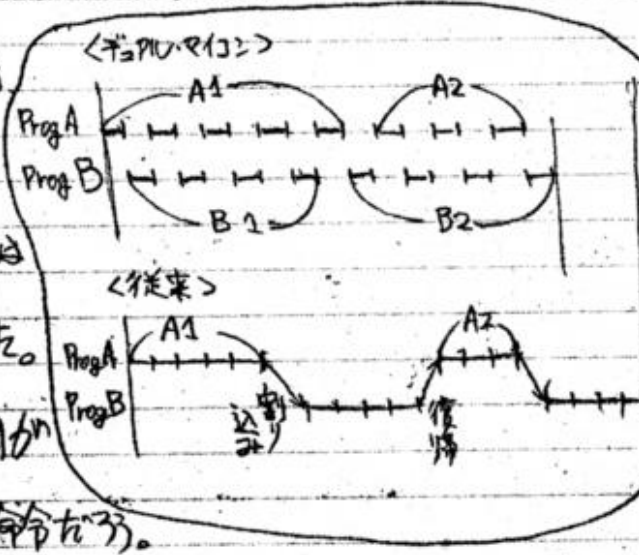 <デュアル・マイコン>
A1 A2
Prog A
Prog B
B1 B2
は
<従来>
た。
A1 A2
Prog A
Prog B
割り込み
復帰
命令だろう。